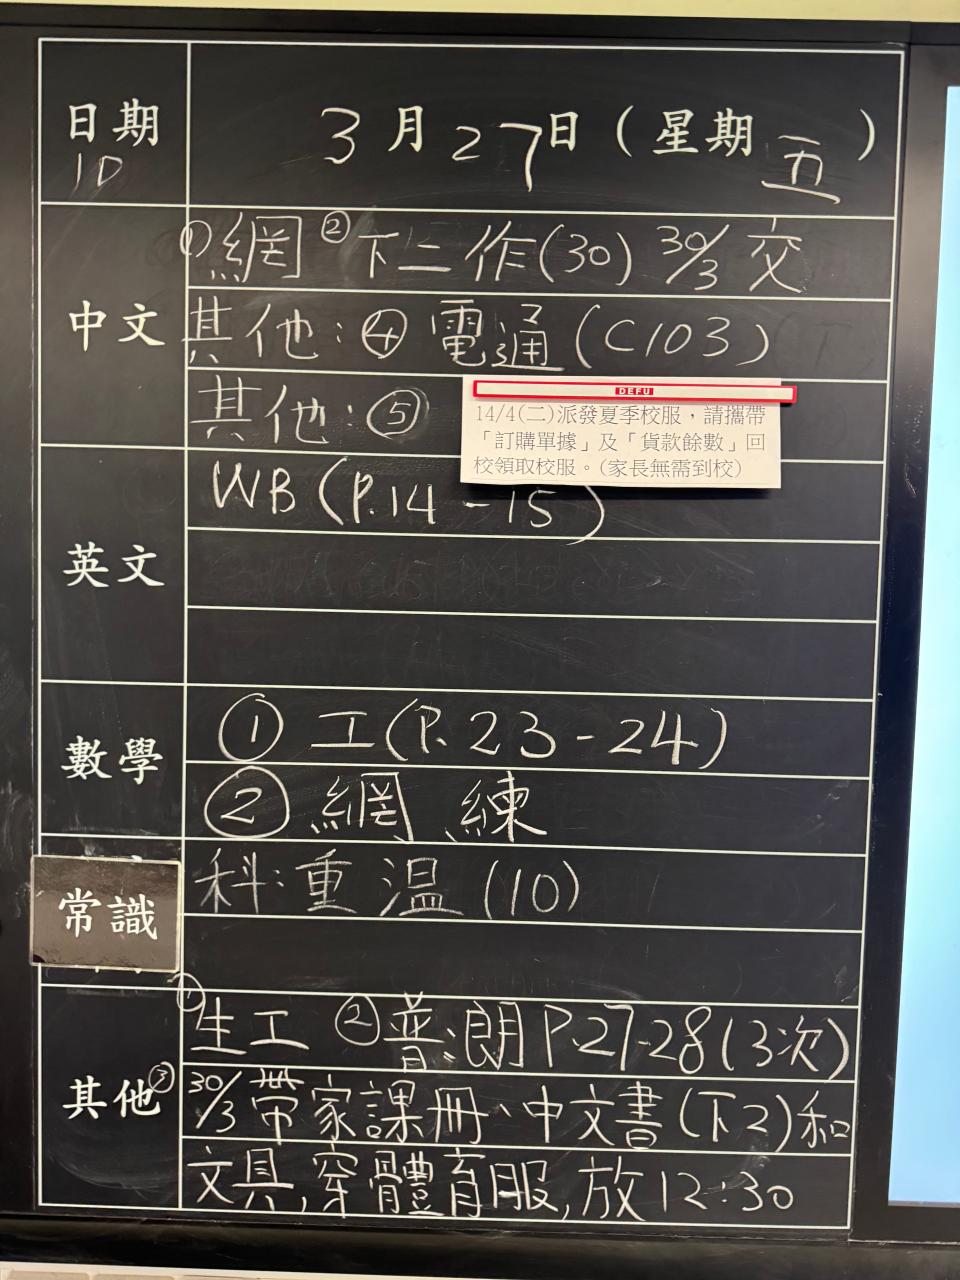 日期 3月27日(星期五)
1D
中文 ①網 ②下二作(30) 30/3交
其他:④電通(C103)
其他:⑤
DEFU
14/4(二)派發夏季校服,請攜帶
「訂購單據」及「貨款餘數」回
校領取校服。(家長無需到校)
英文 WB (P.14-15)
數學 ①工(P.23-24)
②網練
常識 科:重溫(10)
其他 ①生工 ②普:朗P.27-28(3次)
③30/3帶家課冊、中文書(下2)和
文具,穿體育服,放12:30